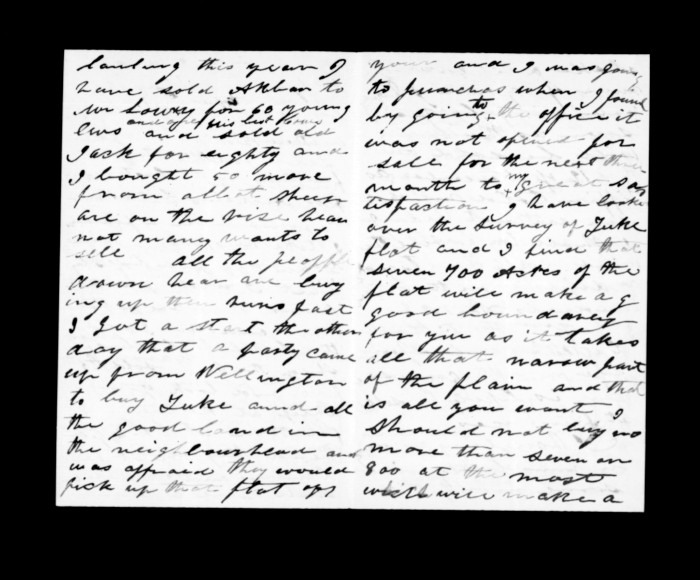 this year I
have sold Akbar to
Mr Lowry for 60 young
ews and one of his best rams
and sold old
Jack for eighty and
I bought 50 more
from abbot. sheep
are on the rise hear
not maney wants to
sell all the peopple
down hear are buy
ing up their runs fast
I Got a start the other
day that a party came
up from Wellington
to buy Tuke annd all
the good land in
the neighbourhead and
was affraid they would
pick up that flat of
yours and I was going
to purchas when I found
by going to the office it
was not opened for
sale for the next three
month to my great sa
tisfaction I have looked
over the survey of Tuke
flat and I find that
seven 700 Akres of the
flat will make a g
good boundarey
for you as it takes
all that narrow part
of the plain and that
is all you want I
should not buy no
more than seven or
800 at the most
witch will make a